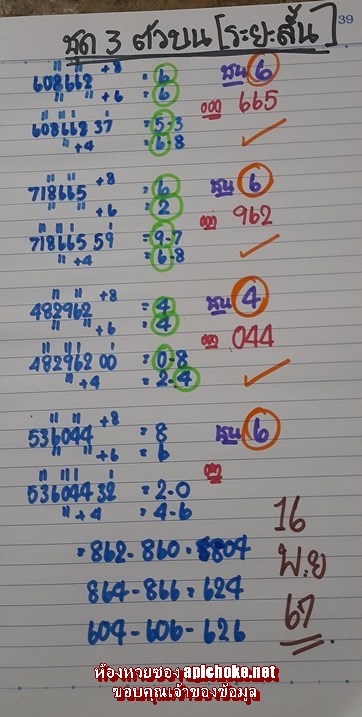 39
ชุด 3 ตัวบน [ระยะสั้น]
608662 +8 = 6 ชน 6
+6 = 6 ออก 665
608662 37 = 5-3
+4 = 6-8
718665 +8 = 6 ชน 6
+6 = 2 ออก 962
718665 59 = 9-7
+4 = 6-8
482962 +8 = 4 ชน 4
+6 = 4 ออก 044
482962 00 = 0-8
+4 = 2-4
536044 +8 = 8 ชน 6
+6 = 6 ออก
536044 32 = 2-0
+4 = 4-6
16
= 862-860-804
พ.ย
864-866-624
67
604-606-626
ห้องหวยซอง apichoke.net
ขอบคุณเจ้าของข้อมูล